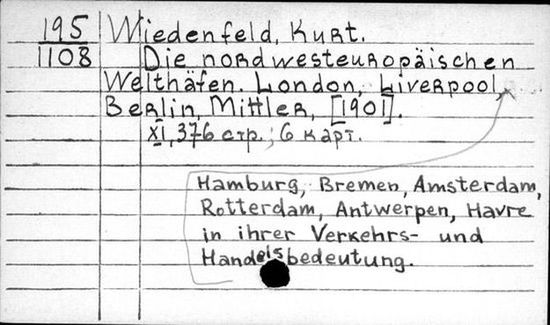 195 Wiedenfeld, Kurt.
1108 Die nordwesteuropäischen
Welthäfen. London, Liverpool,
Berlin, Mittler, [1901].
XI, 376 стр.; 6 карт.
Hamburg, Bremen, Amsterdam,
Rotterdam, Antwerpen, Havre
in ihrer Verkehrs- und
Handelsbedeutung.